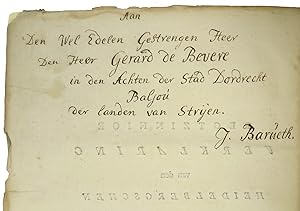 Aan
Den Wel Edelen Gestrengen Heer
Den Heer Gerard de Bevere
in den Achten der Stad Dordrecht
Baljoú
der landen van Strijen.
J. Barúeth.
VERKLARING
van den
HEIDELBERGSCHEN